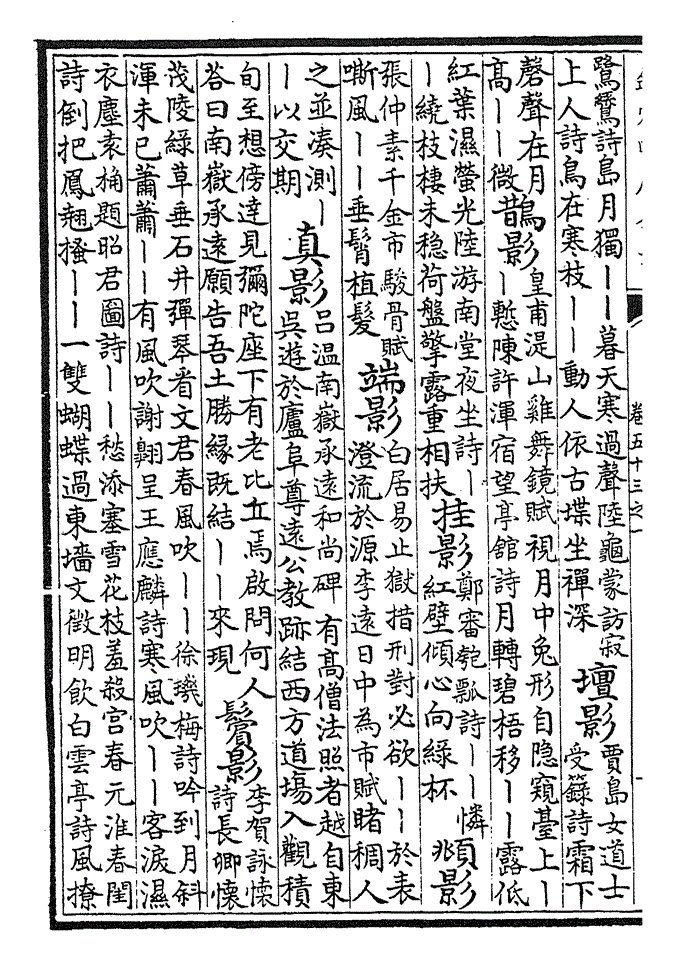 卷五十三之一
鷺鷥詩島月獨丨丨暮天寒過聲陸龜蒙訪寂
上人詩鳥在寒枝丨丨動人依古堞坐禪深
壇影
賈島女道士
受籙詩霜下
磬聲在月
高丨丨微
鵲影
皇甫湜山雞舞鏡賦視月中兔形自隱窺臺上丨
丨慙陳許渾宿望亭館詩月轉碧梧移丨丨露低
紅葉濕螢光陸游南堂夜坐詩丨
丨繞枝棲未穏荷盤擎露重相扶
挂影
鄭審匏瓢詩丨丨憐
紅壁傾心向緑杯
頫影
張仲素千金市駿骨賦
嘶風丨丨垂鬐植髮
端影
白居易止獄措刑對必欲丨丨於表
澄流於源李遠日中為市賦睹稠人
之並凑測丨
丨以交期
真影
呂温南嶽承遠和尚碑有高僧法照者越自東
吳遊於廬阜尊遠公教跡結西方道塲入觀積
旬至想傍達見彌陀座下有老比丘焉啟問何人
荅曰南嶽承遠願告吾土勝緣既結丨丨來現
鬢影
李賀詠懷
詩長卿懷
茂陵緑草垂石井彈琴看文君春風吹丨丨徐璣梅詩吟到月斜
渾未已蕭蕭丨丨有風吹謝翺呈王應麟詩寒風吹丨丨客淚濕
衣塵袁桷題昭君圖詩丨丨愁添塞雪花枝羞殺宫春元淮春閨
詩倒把鳳翹搔丨丨一雙蝴蝶過東墻文徵明飲白雲亭詩風撩